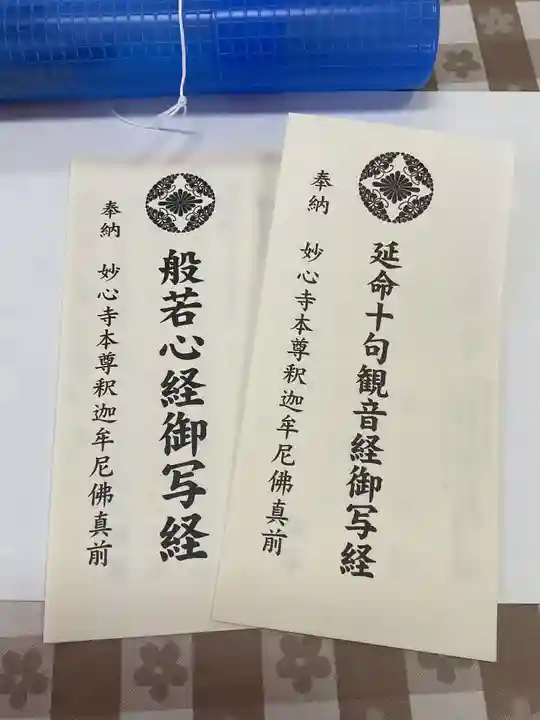 延命十句観音経御写経
奉納　妙心寺本尊釈迦牟尼佛真前
般若心経御写経
奉納　妙心寺本尊釈迦牟尼佛真前